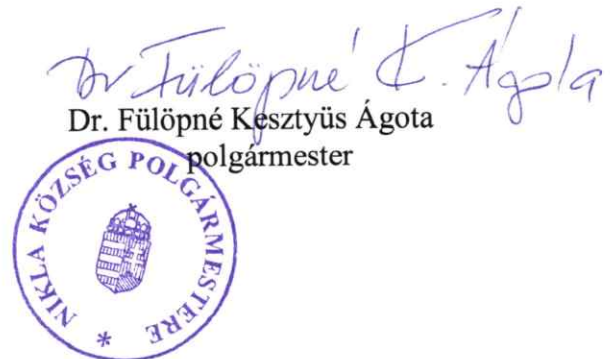 Dr Fülöpné K. Ágota
Dr. Fülöpné Kesztyüs Ágota
polgármester
NIKLA KÖZSÉG POLGÁRMESTERE *